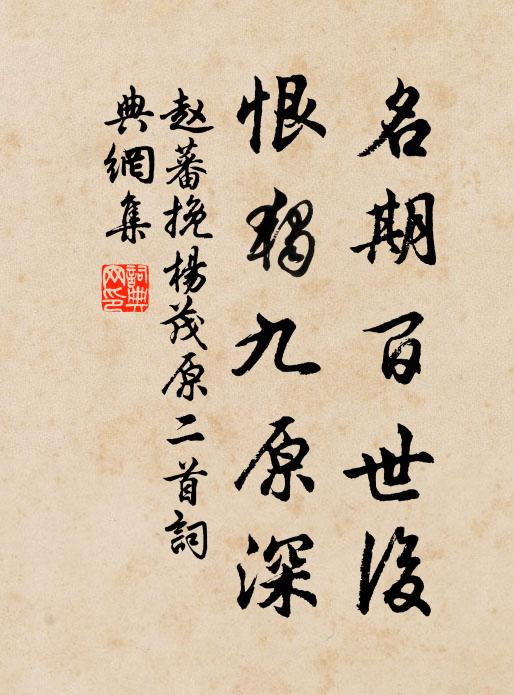 名期百世後
恨獨九原深
赵蕃挽楊茂原二首詞
典網集
詞典
网印